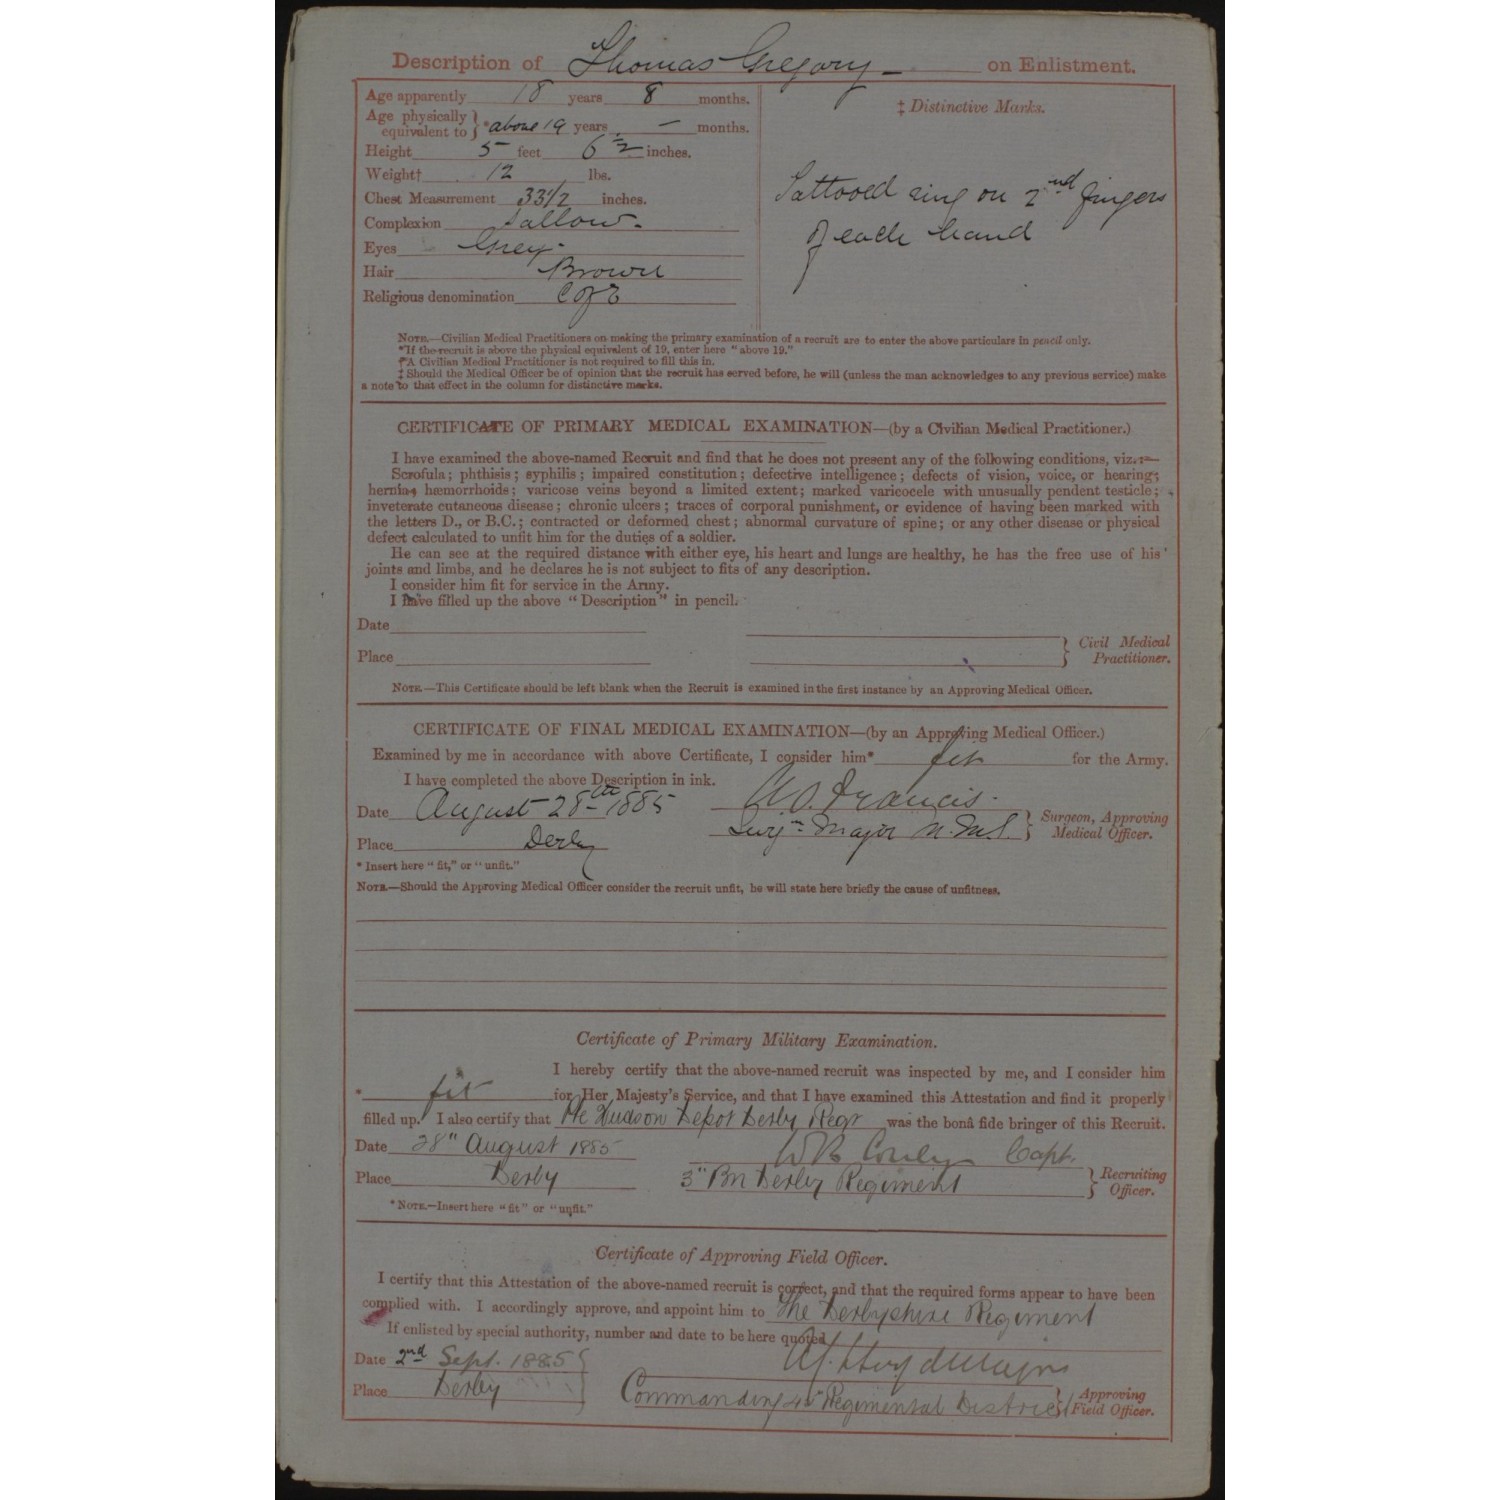 Description of Thomas Gregory on Enlistment.
Age apparently 18 years 8 months.
Age physically equivalent to } *above 19 years — months.
Height 5 feet 6 ½ inches.
Weight† 12 lbs.
Chest Measurement 33½ inches.
Complexion Sallow.
Eyes Grey.
Hair Brown
Religious denomination C of E
‡ Distinctive Marks.
Tattooed ring on 2nd fingers
of each hand
NOTE.—Civilian Medical Practitioners on making the primary examination of a recruit are to enter the above particulars in pencil only.
*If the recruit is above the physical equivalent of 19, enter here "above 19."
†A Civilian Medical Practitioner is not required to fill this in.
‡Should the Medical Officer be of opinion that the recruit has served before, he will (unless the man acknowledges to any previous service) make
a note to that effect in the column for distinctive marks.
CERTIFICATE OF PRIMARY MEDICAL EXAMINATION—(by a Civilian Medical Practitioner.)
I have examined the above-named Recruit and find that he does not present any of the following conditions, viz.:—
Scrofula; phthisis; syphilis; impaired constitution; defective intelligence; defects of vision, voice, or hearing;
hernia; hæmorrhoids; varicose veins beyond a limited extent; marked varicocele with unusually pendent testicle;
inveterate cutaneous disease; chronic ulcers; traces of corporal punishment, or evidence of having been marked with
the letters D., or B.C.; contracted or deformed chest; abnormal curvature of spine; or any other disease or physical
defect calculated to unfit him for the duties of a soldier.
He can see at the required distance with either eye, his heart and lungs are healthy, he has the free use of his
joints and limbs, and he declares he is not subject to fits of any description.
I consider him fit for service in the Army.
I have filled up the above "Description" in pencil.
Date
Place
Civil Medical
Practitioner.
NOTE.—This Certificate should be left blank when the Recruit is examined in the first instance by an Approving Medical Officer.
CERTIFICATE OF FINAL MEDICAL EXAMINATION—(by an Approving Medical Officer.)
Examined by me in accordance with above Certificate, I consider him* fit for the Army.
I have completed the above Description in ink.
Date August 28th 1885 Francis.
Surgn Major Surgeon, Approving
Medical Officer.
Place Derby
* Insert here "fit," or "unfit."
NOTE.—Should the Approving Medical Officer consider the recruit unfit, he will state here briefly the cause of unfitness.
Certificate of Primary Military Examination.
I hereby certify that the above-named recruit was inspected by me, and I consider him
* fit for Her Majesty's Service, and that I have examined this Attestation and find it properly
filled up. I also certify that Pte Hudson Depot Derby Regt was the bonâ fide bringer of this Recruit.
Date 28" August 1885 Capt.
Place Derby 3" Bn Derby Regiment Recruiting
Officer.
*NOTE.—Insert here "fit" or "unfit."
Certificate of Approving Field Officer.
I certify that this Attestation of the above-named recruit is correct, and that the required forms appear to have been
complied with. I accordingly approve, and appoint him to The Derbyshire Regiment
If enlisted by special authority, number and date to be here quoted
Date 2nd Sept. 1885
Place Derby Commanding 45 Regimental District Approving
Field Officer.